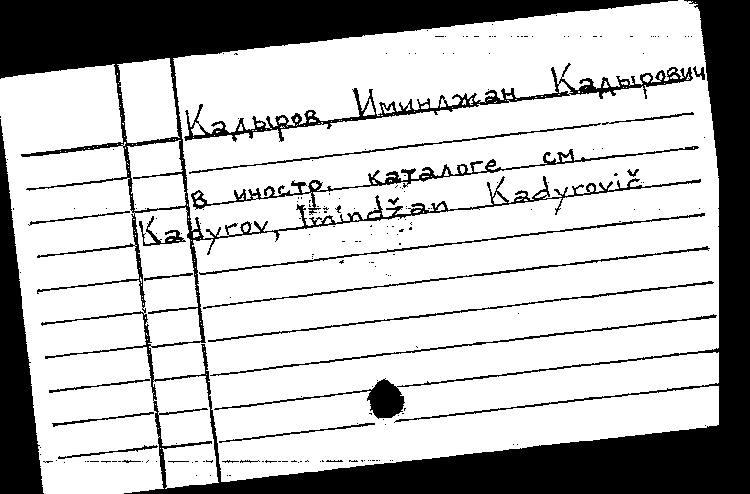 Кадыров, Иминджан Кадырович
в иностр. каталоге см.
Kadyrov, Imindžan Kadyrovič